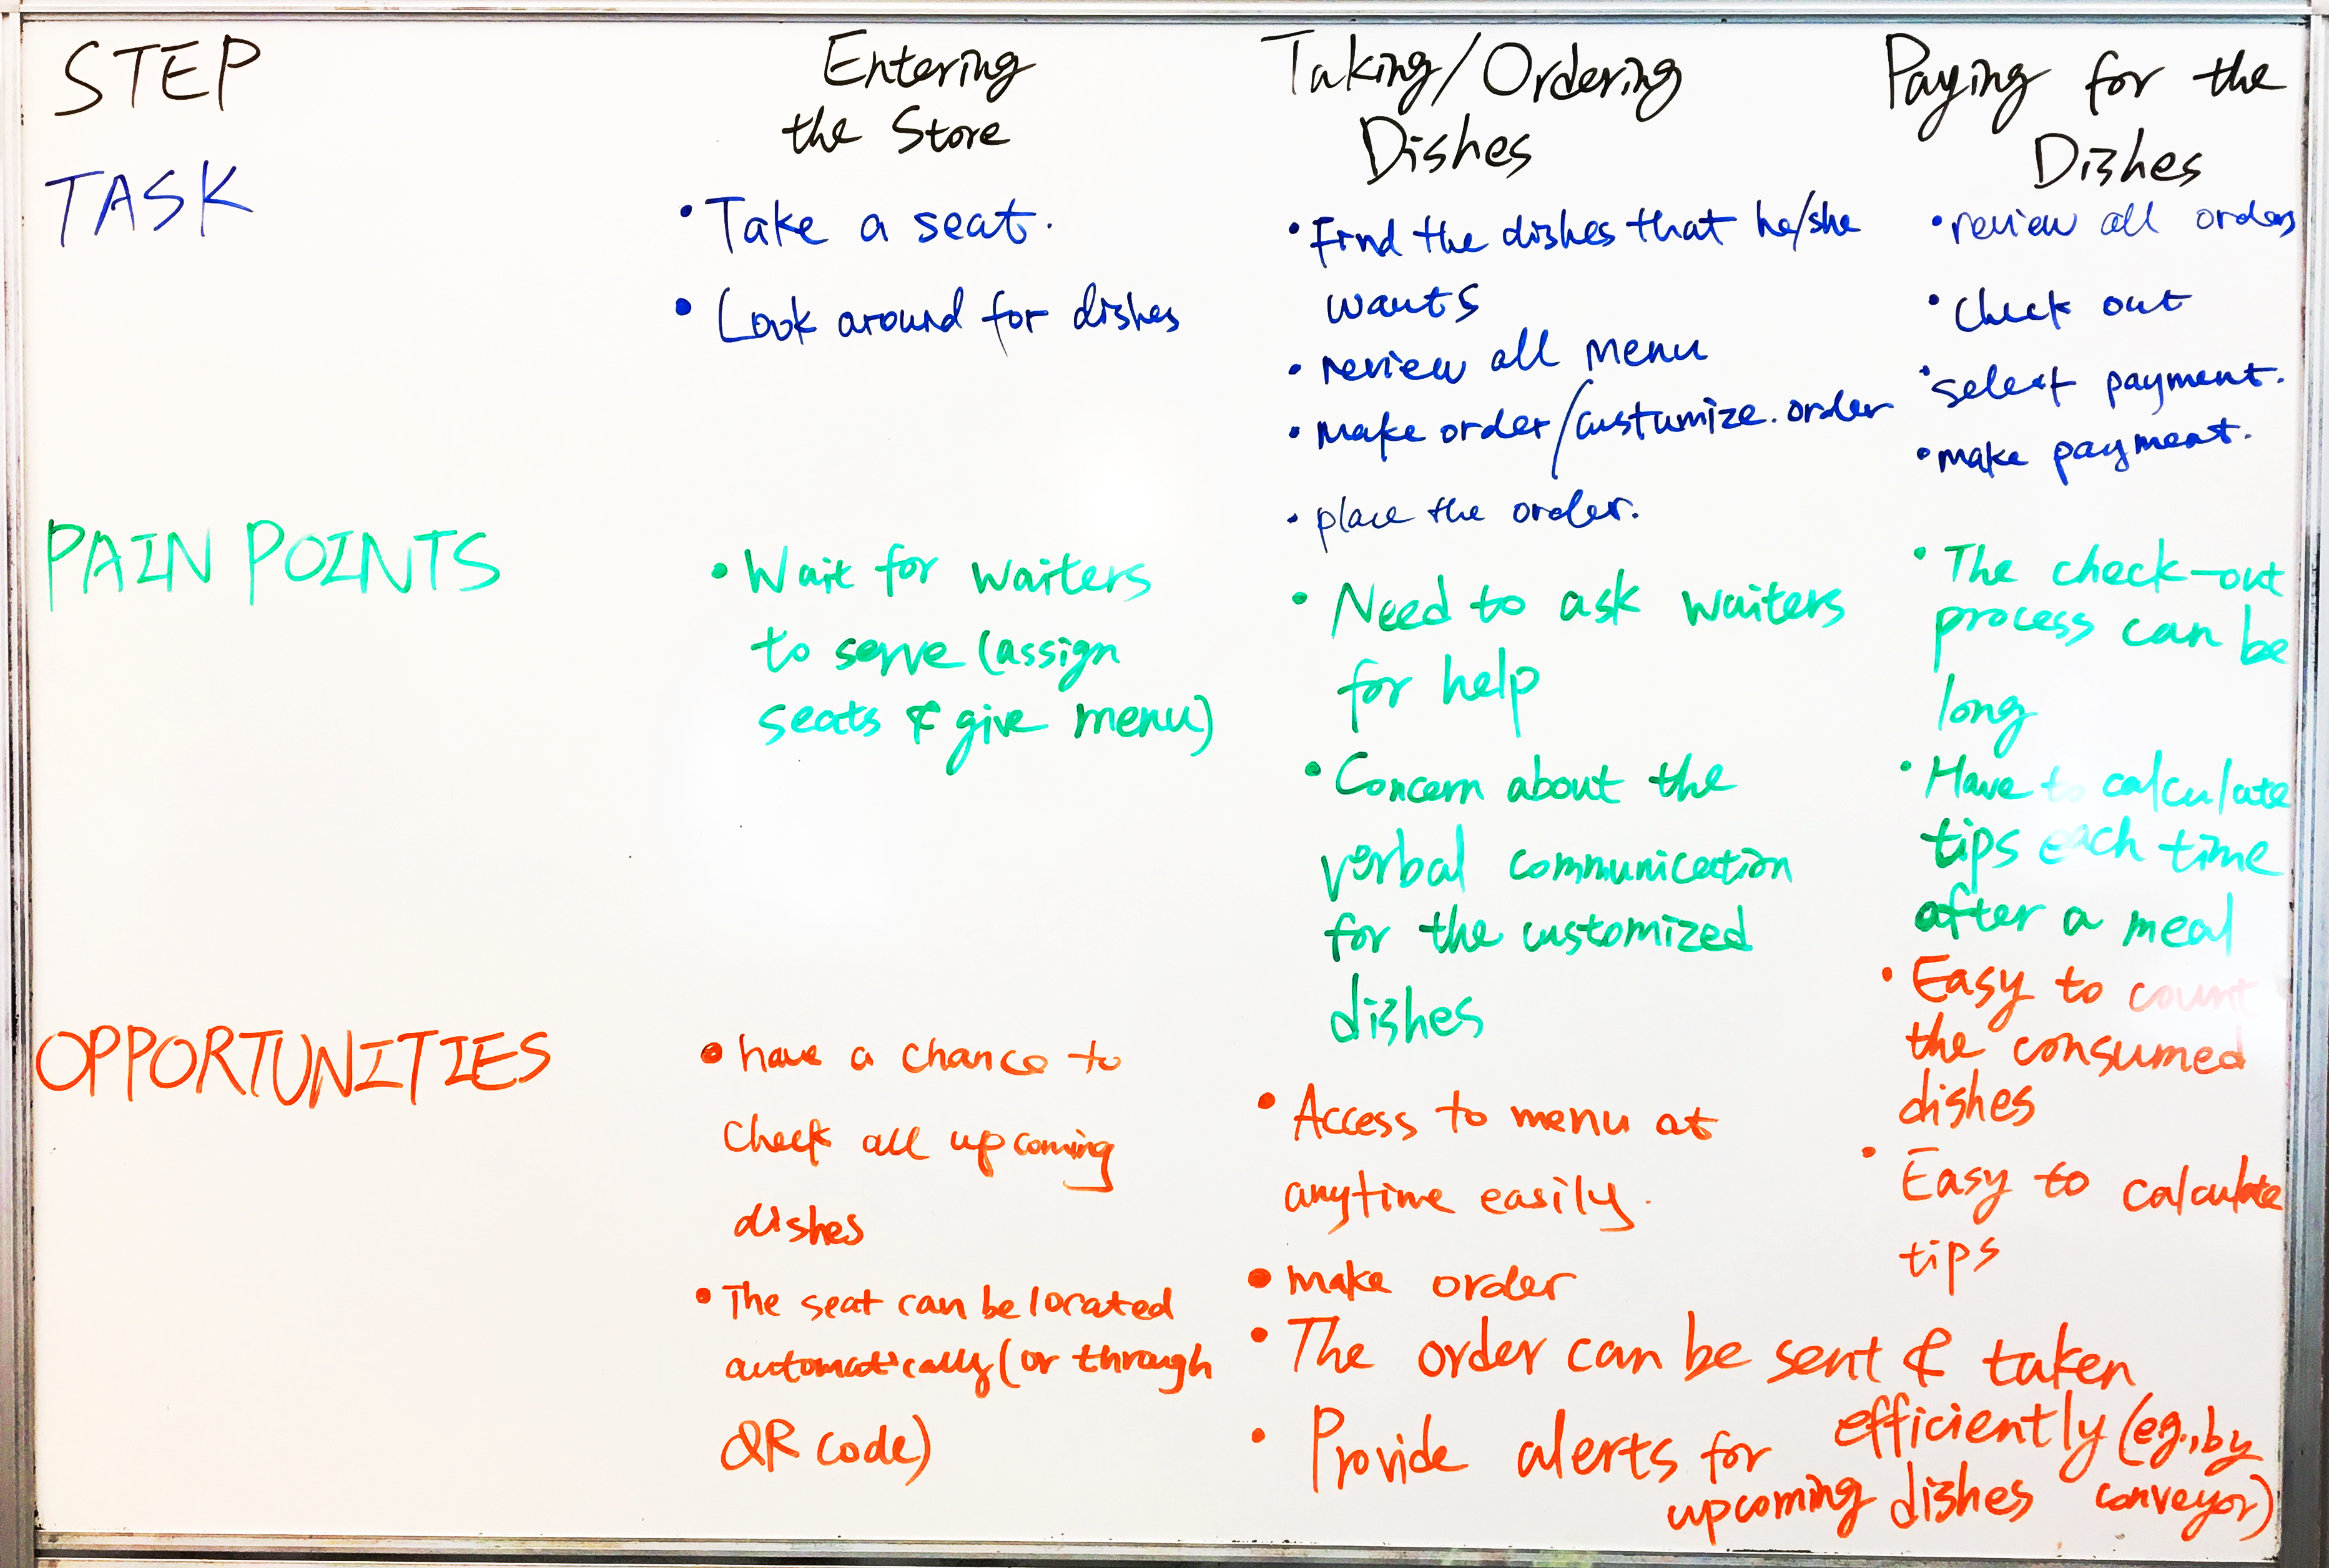 STEP
Entering
the Store
Taking/Ordering
Dishes
Paying for the
Dishes
TASK
• Take a seat.
• Look around for dishes
• Find the dishes that he/she
wants
• review all menu
• Make order/custumize. order
• place the order.
• review all orders
• check out
• select payment.
• make payment.
PAIN POINTS
• Wait for waiters
to serve (assign
seats & give menu)
• Need to ask waiters
for help
• Concern about the
verbal communication
for the customized
dishes
• The check-out
process can be
long
• Have to calculate
tips each time
after a meal
OPPORTUNITIES
• have a chance to
check all upcoming
dishes
• The seat can be located
automatically (or through
QR code)
• Access to menu at
anytime easily.
• make order
• The order can be sent & taken
efficiently (eg., by
conveyor)
• Provide alerts for
upcoming dishes
• Easy to count
the consumed
dishes
• Easy to calculate
tips